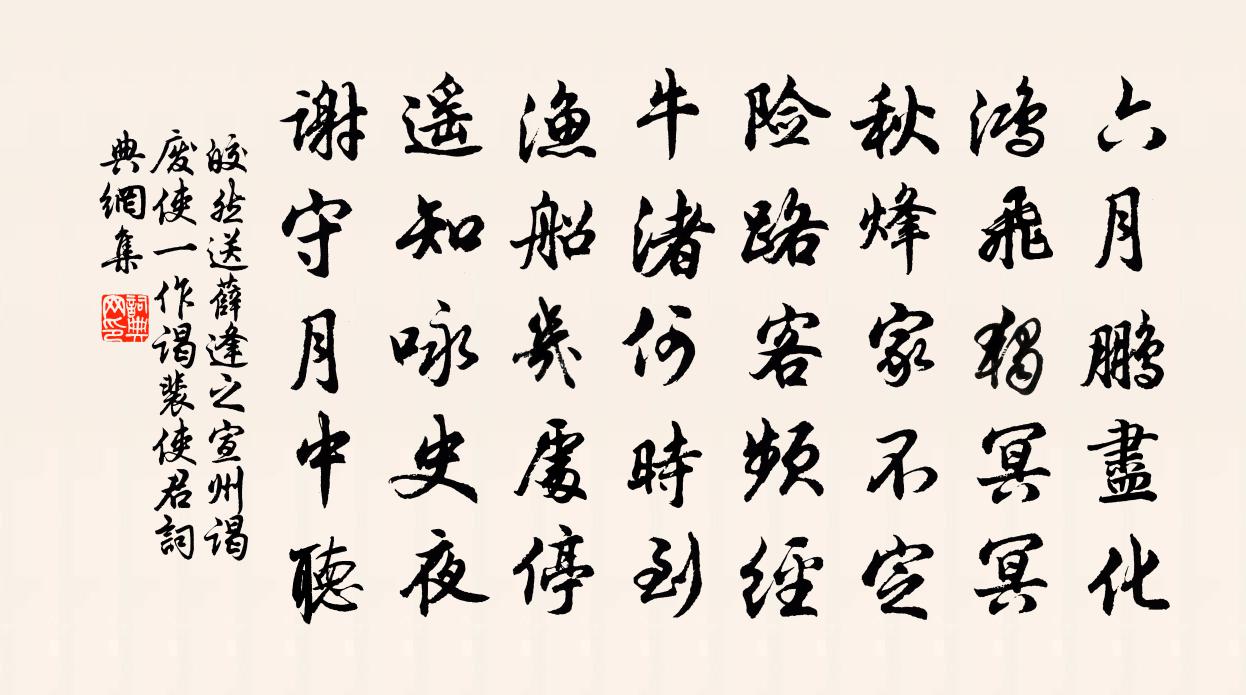 六月鵬盡化
鸿飛獨冥冥
秋烽家不定
险路客頻經
牛渚何時到
漁船幾處停
遥知咏史夜
謝守月中聽
皎然送薛逢之宣州谒
废使一作谒裴使君詞
典網集
詞典网印